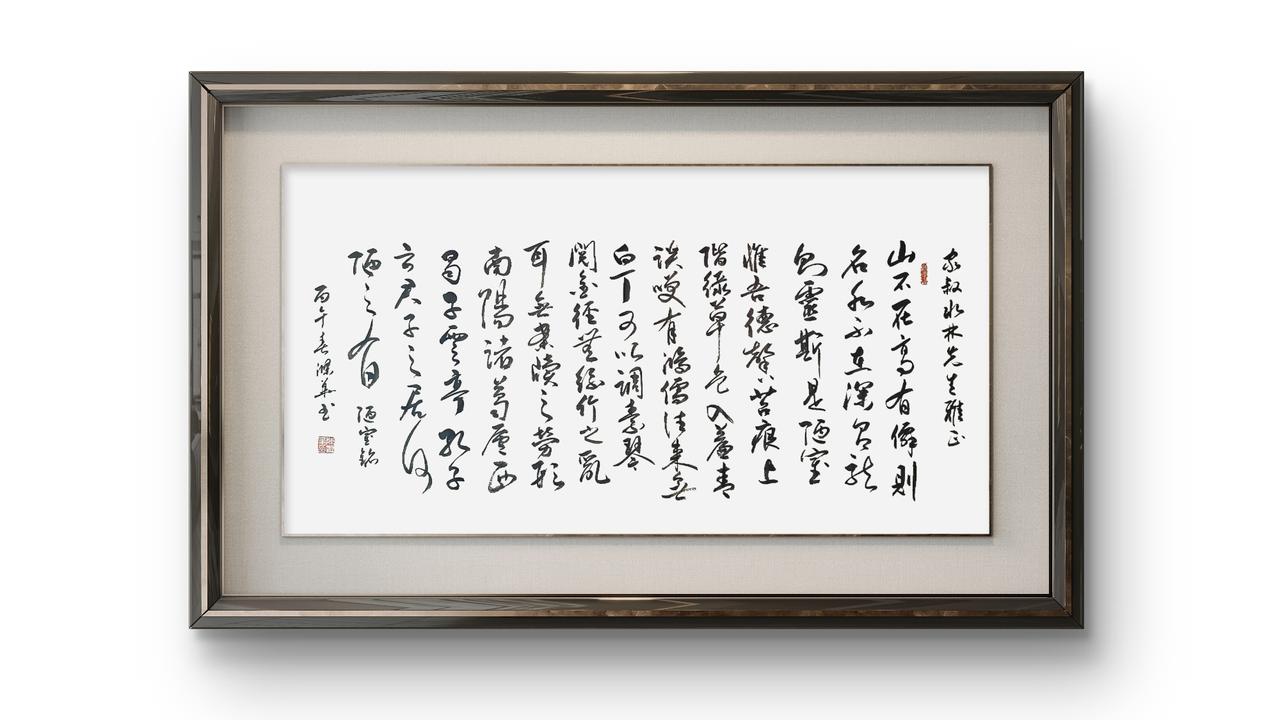 家叔水林先生雅正
山不在高有僊則
名水不在深有龍
則靈斯是陋室
惟吾德馨苔痕上
階綠草色入簾青
談咲有鴻儒往來無
白丁可以調素琴
閱金經無絲竹之亂
耳無案牘之勞形
南陽諸葛廬西
蜀子雲亭孔子
云君子之居何
陋之有 陋室銘
丙午春